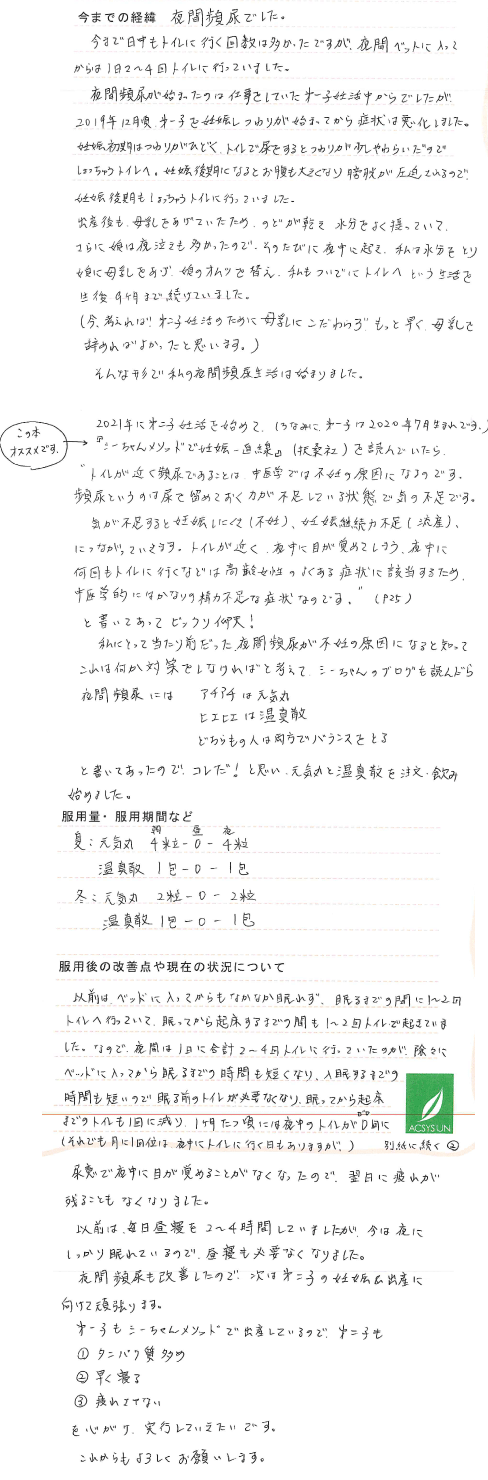 今までの経緯　夜間頻尿でした。
今まで日中もトイレに行く回数は多かったですが、夜間ベットに入って
からは1日2〜4回トイレに行っていました。
夜間頻尿が始まったのは仕事をしていた第一子妊活中からでしたが、
2019年12月頃、第一子を妊娠しつわりが始まってから症状は悪化しました。
妊娠初期はつわりがひどく、トイレで尿をするとつわりが少しやわらいだので
しょっちゅうトイレへ。妊娠後期になるとお腹も大きくなり膀胱が圧迫されるので、
妊娠後期もしょっちゅうトイレに行っていました。
出産後も、母乳をあげていたため、のどが乾き水分をよく摂っていて、
さらに娘は夜泣きも多かったので、そのたびに夜中に起きて、私は水分をとり
娘に母乳をあげ、娘のオムツを替え、私もついでにトイレへという生活を
生後9ヶ月まで続けていました。
(今、考えれば第二子妊活のために母乳にこだわらず、もっと早く母乳を
辞めればよかったと思います。)
そんな形で私の夜間頻尿生活は始まりました。
この本
オススメです。
2021年に第二子妊活を始めて、(ちなみに、第一子は2020年7月生まれです。)
『シーちゃんメソッドで妊娠一直線』(扶桑社)を読んでいたら、
"トイレが近く頻尿であることは、中医学では不妊の原因になるのです。
頻尿というのは尿で留めておく力が不足している状態で気の不足です。
気が不足すると妊娠しにくく(不妊)、妊娠継続力不足(流産)、
につながっていきます。トイレが近く、夜中に目が覚めてしまう、夜中に
何回もトイレに行くなどは高齢女性のよくある症状に該当するため、
中医学的にはかなりの精力不足な症状なのです。"(P25)
と書いてあってビックリ仰天!
私にとって当たり前だった夜間頻尿が不妊の原因になると知って
これは何か対策をしなければと考えて、シーちゃんのブログも読んだら
夜間頻尿には　アチアチは元気丸
ヒエヒエは温真散
どちらもの人は両方でバランスをとる
と書いてあったので、コレだ!と思い、元気丸と温真散を注文・飲み
始めました。
服用量・服用期間など
朝　昼　夜
夏:元気丸　4粒-0-4粒
温真散　1包-0-1包
冬:元気丸　2粒-0-2粒
温真散　1包-0-1包
服用後の改善点や現在の状況について
以前は、ベッドに入ってからもなかなか眠れず、眠るまでの間に1〜2回
トイレへ行っていて、眠ってから起床するまでの間も1〜2回トイレで起きていま
した。なので、夜間は1日に合計2〜4回トイレに行っていたのが、除々に
ベッドに入ってから眠るまでの時間も短くなり、入眠するまでの
時間も短いので眠る前のトイレが必要なくなり、眠ってから起床
までのトイレも1回に減り、1ヶ月たつ頃には夜中のトイレが0回に
(それでも月に1回位は夜中にトイレに行く日もありますが。)　別紙に続く②
ACSYSUN
尿意で夜中に目が覚めることがなくなったので、翌日に疲れが
残ることもなくなりました。
以前は、毎日昼寝を2〜4時間していましたが、今は夜に
しっかり眠れているので、昼寝も必要なくなりました。
夜間頻尿も改善したので、次は第二子の妊娠&出産に
向けて頑張ります。
第一子もシーちゃんメソッドで出産しているので、第二子も
①タンパク質多め
②早く寝る
③疲れさせない
を心がけ、実行していきたいです。
これからもよろしくお願いします。